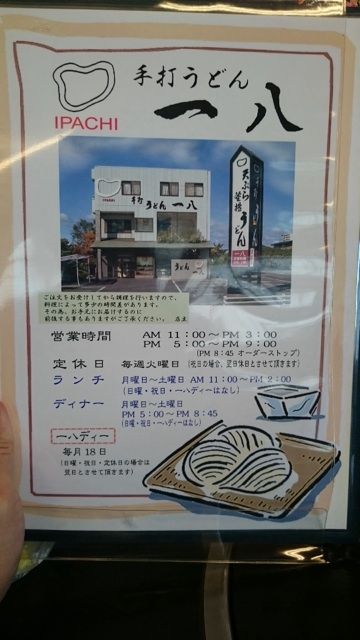 手打うどん
一八
IPACHI
IPACHI
手打
うどん 一八
うどん
天ぷら
釜揚
うどん
一八
ご注文をお受けしてから調理を行いますので、
料理によって多少の時間差があります。
その為、お手元にお届けするのに
前後する事もありますがご了承ください。 店主
営業時間 AM 11:00～PM 3:00
PM 5:00～PM 9:00
(PM 8:45 オーダーストップ)
定休日 毎週火曜日 (祝日の場合、翌日休日とさせて頂きます)
ランチ 月曜日～土曜日 AM 11:00～PM 2:00
(日曜・祝日・一ハディーはなし)
ディナー 月曜日～土曜日
PM 5:00～PM 8:45
(日曜・祝日・一ハディーはなし)
一ハディー
毎月18日
(日曜・祝日・定休日の場合は
翌日とさせて頂きます)